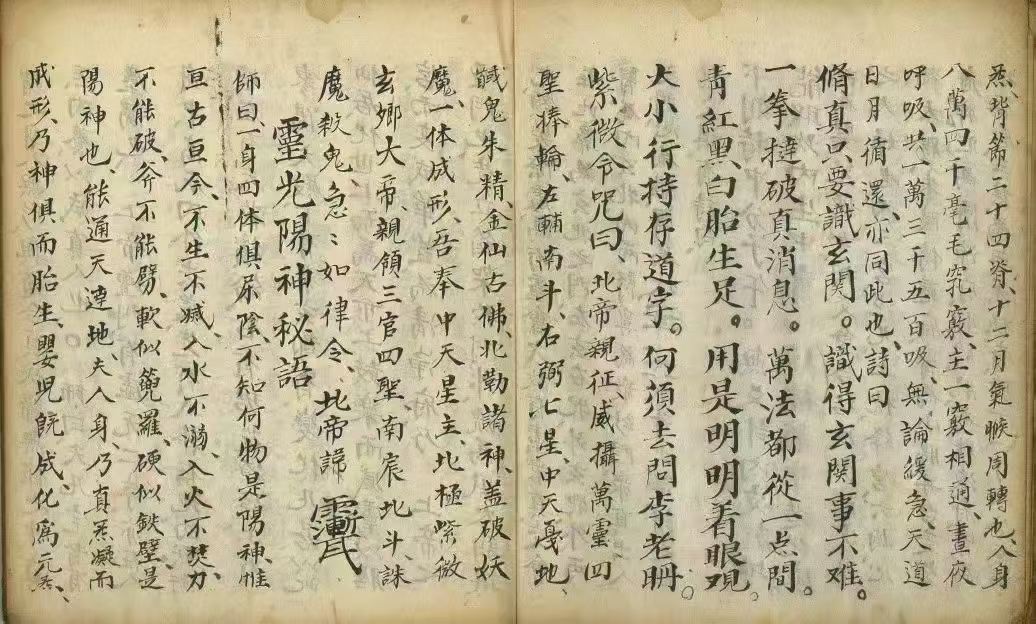 炁背節二十四脊、十二月氣㬋周轉也、人身
八萬四千毫毛究竅、主一竅相通、晝夜
呼吸、共一萬三千五百吸、無論緩急、天道
日月循還、亦同此也、詩曰
脩真只要識玄関。識得玄関事不难。
一拳撻破真消息。萬法都從一点間。
青紅黑白胎生足。用是明明着眼观。
大小行持存道字。何須去問李老聃。
紫微令咒曰、北帝親征、威攝萬靈、四
聖捧輪、左輔南斗、右弼七星、中天戞地、
鹹鬼朱精、金仙古佛、北勒諸神、盖破妖
魔、一体成形、吾奉中天星主、北極紫微
玄卿大帝、親領三官四聖南宸北斗、誅
魔殺鬼、急：如律令、北帝諦
靈光陽神秘語
師曰、一身四体俱屎陰、不知何物是陽神、惟
亘古亘今、不生不滅、入水不溺、入火不焚、刀
不能破、斧不能劈、軟似篼羅、硬似鉄壁、是
陽神也、能通天達地、夫人身、乃真炁凝而
成形、乃神俱而胎生、嬰児皖成、化為元炁、